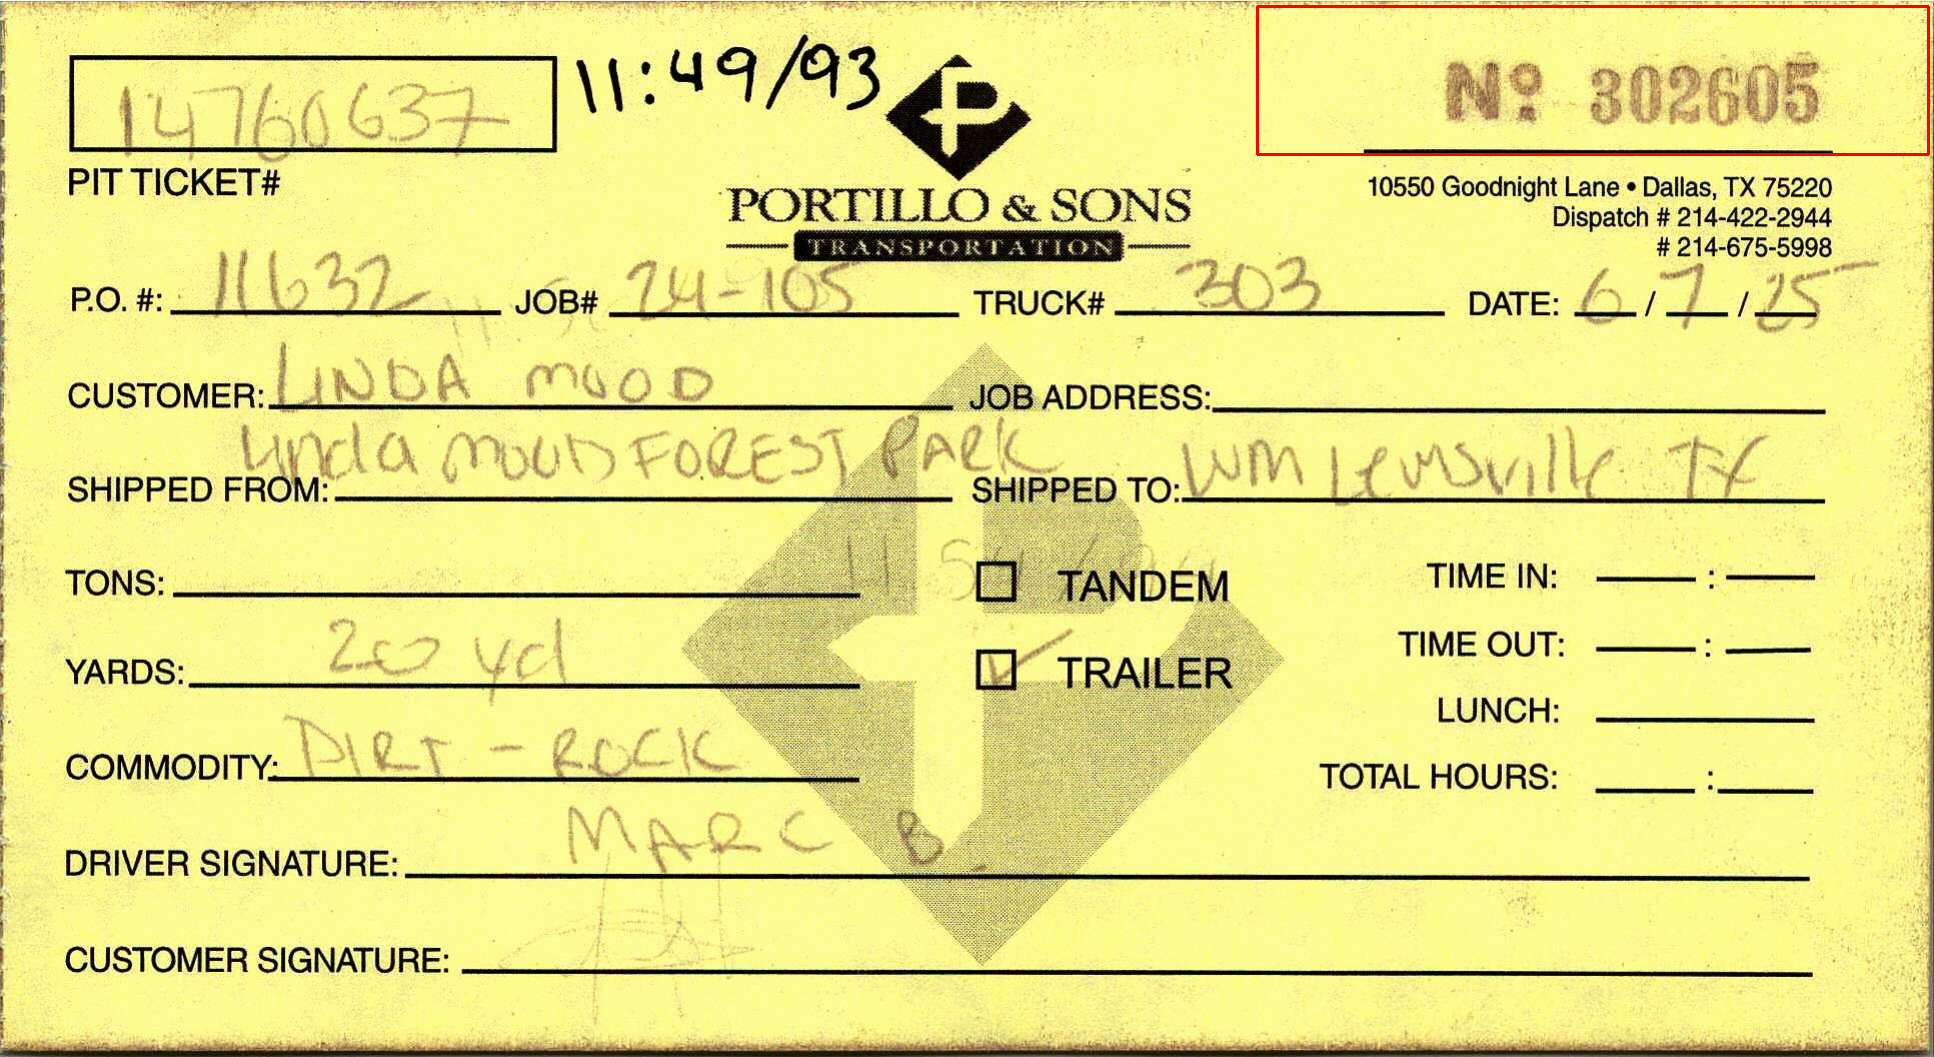 14760637
11:49/93
Nº 302605
PIT TICKET#
PORTILLO & SONS
TRANSPORTATION
10550 Goodnight Lane • Dallas, TX 75220
Dispatch # 214-422-2944
# 214-675-5998
P.O. #: 11632 JOB# 24-105 TRUCK# 303 DATE: 6/7/25
CUSTOMER: LINDA MOOD JOB ADDRESS:
SHIPPED FROM: Linda mood FOREST PARK SHIPPED TO: WM Lewisville TX
TONS: TANDEM TIME IN: :
YARDS: 20 yd TRAILER TIME OUT: :
LUNCH:
COMMODITY: DIRT - ROCK TOTAL HOURS: :
DRIVER SIGNATURE: MARC B.
CUSTOMER SIGNATURE: